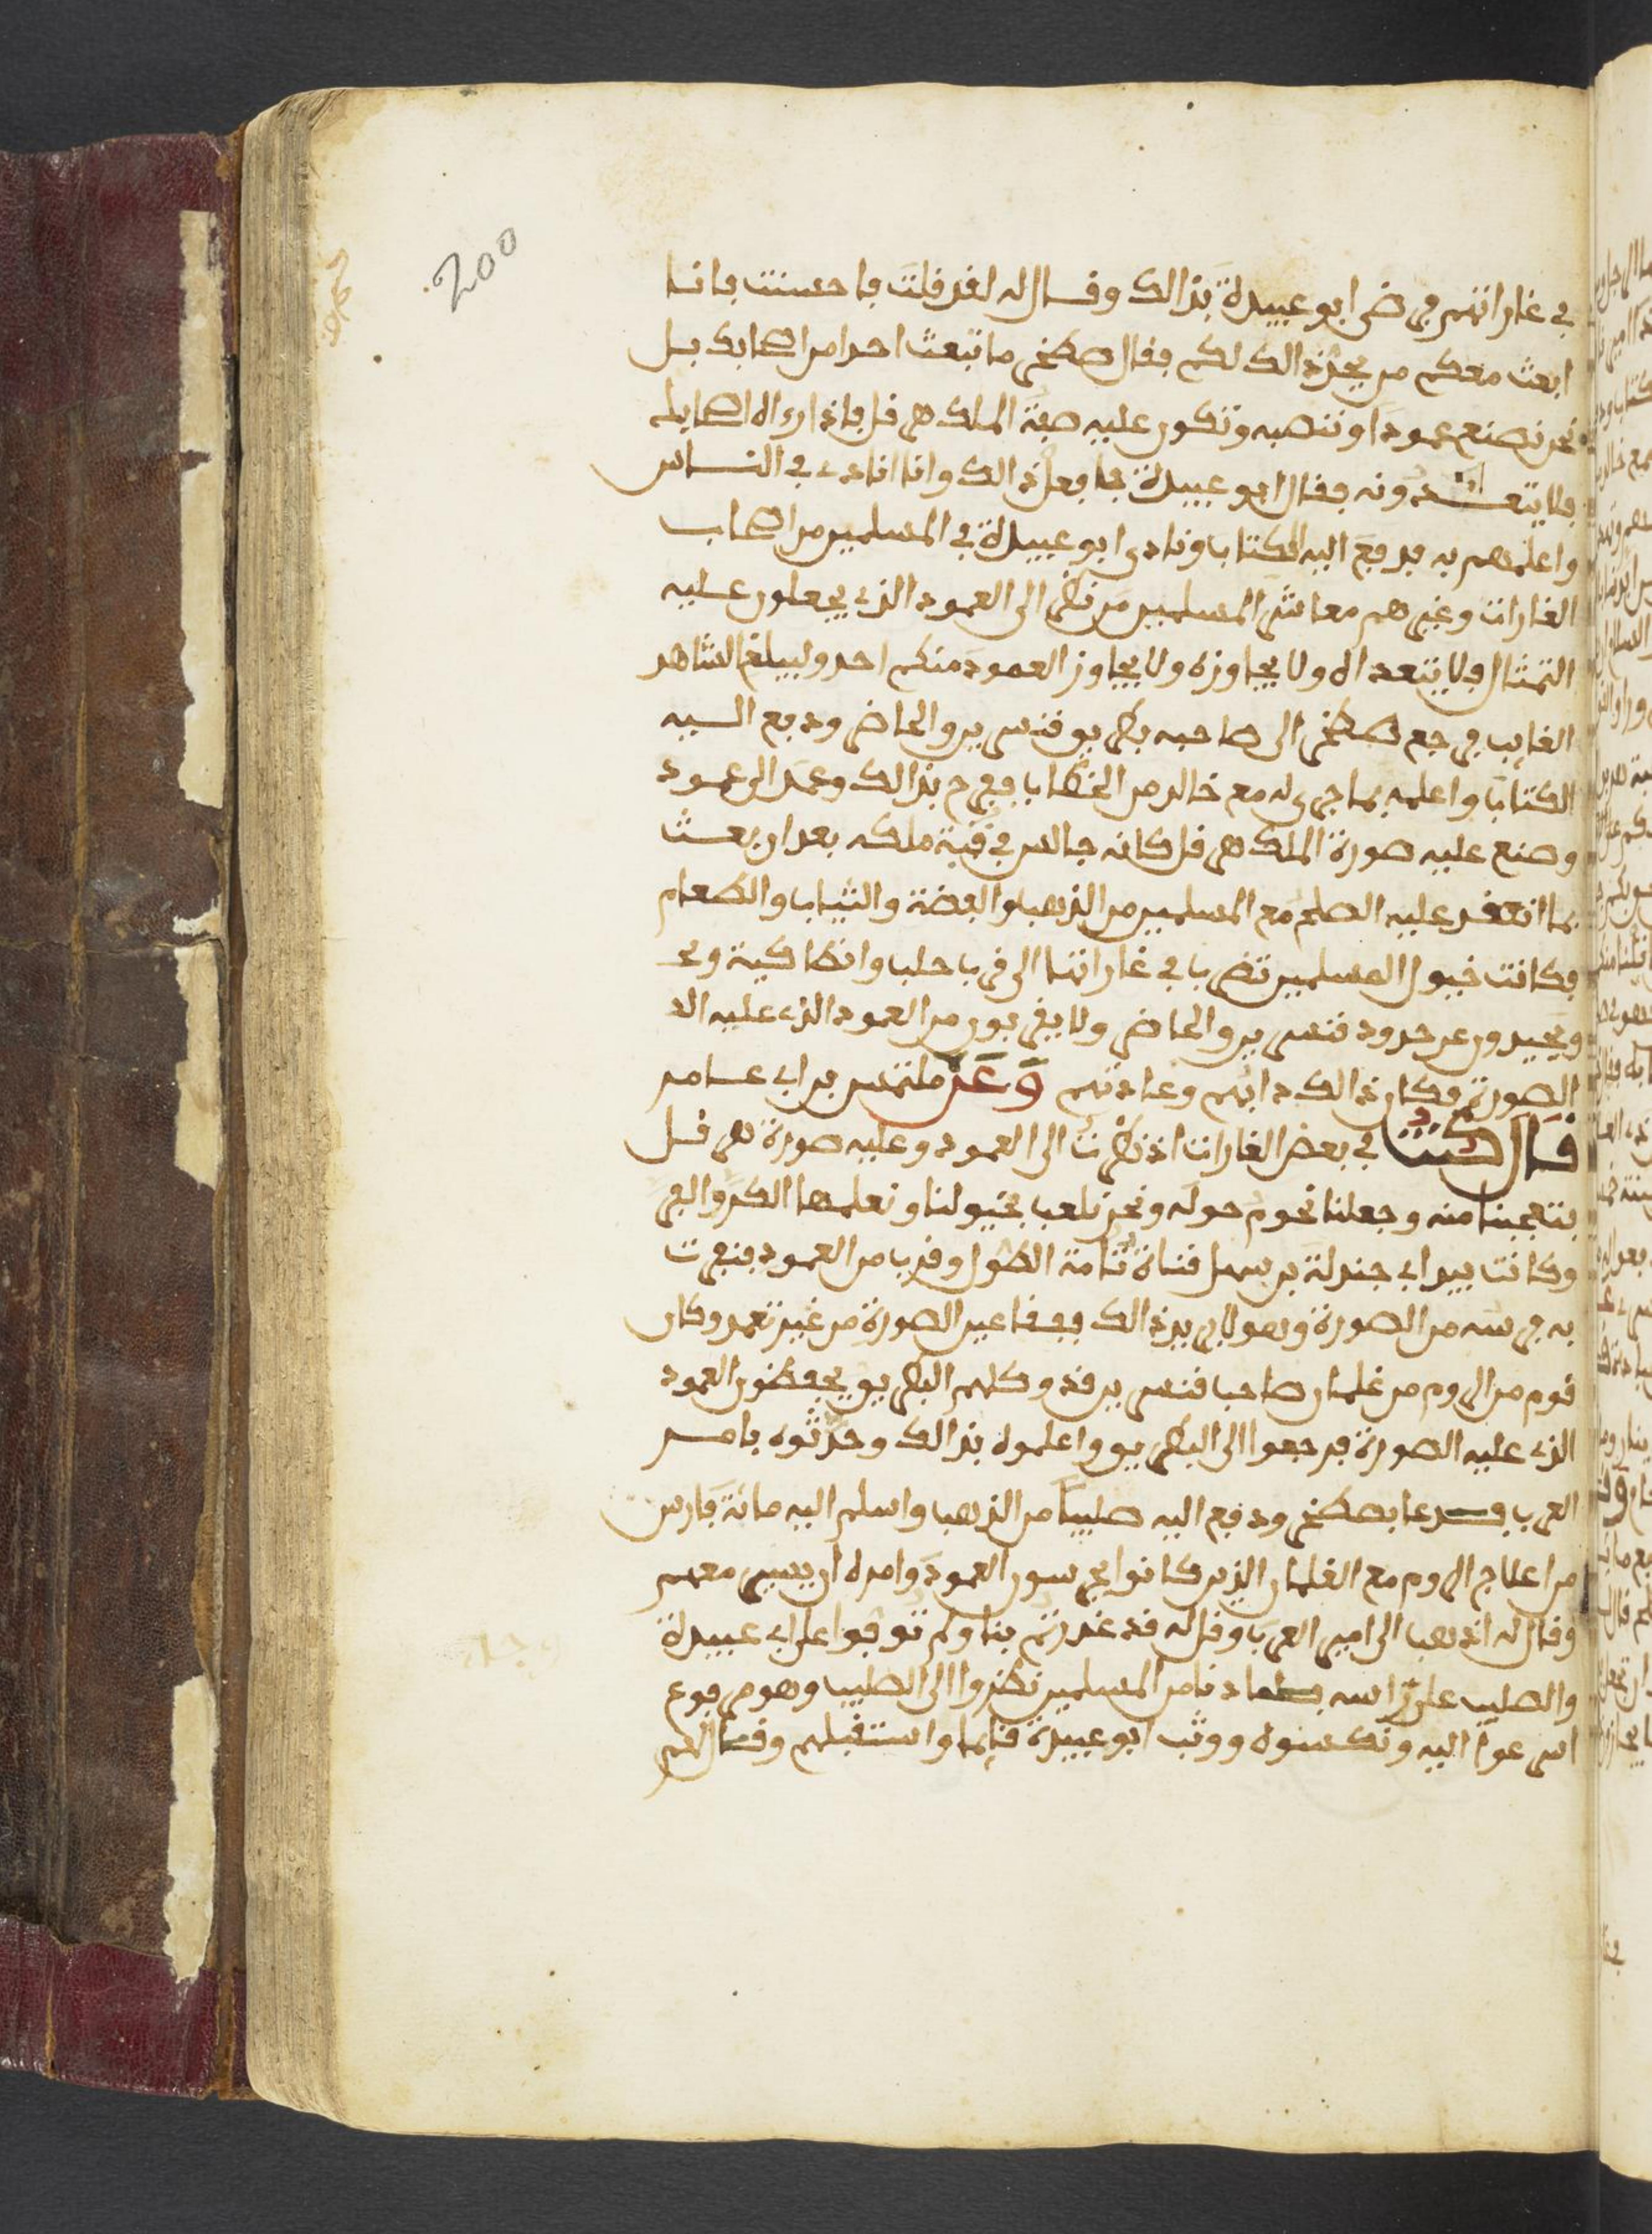 200
في غاراتهم فرضي ابو عبيدة بذالك وقال له لقد قلت فاحسنت فانا
ابعث معكم من يحرز ذالك لكم فقال صطخر ما تبعث احدا من اصحابك بل
نحن نصنع عمودا وننصبه وتكون عليه صفة الملك هرقل فاذا راه اصحابك
فلا يتعدونه فقال ابو عبيدة فافعل ذالك وانا انادي في الناس
واعلمهم به فدفع اليه الكتاب ونادى ابو عبيدة في المسلمين من اصحاب
الغارات وغيرهم معاشر المسلمين من نظر الى العمود الذي يجعلون عليه
التمثال فلا يتعداه ولا يجاوزه ولا يجاوز العمود منكم احد وليبلغ الشاهد
الغايب فرجع صطخر الى صاحبه بطريق قنسرين والحاضر ودفع اليه
الكتاب واعلمه بما جرى له مع خالد من الخطاب ففرح بذالك وعمد الى عمود
وصنع عليه صورة الملك هرقل كانه جالس في قبة ملكه بعد ان بعث
بما انعقد عليه الصلح مع المسلمين من الذهب والفضة والثياب والطعام
فكانت خيول المسلمين تضرب في غاراتنا الى قرب حلب وانطاكية ويح
ويحيدون عن حدود قنسرين والحاضر ولا يقربون من العمود الذي عليه الا
الصورة فكان ذالك دابهم وعادتهم وعن ملتمس بن ابي عامر
قال كنت في بعض الغارات اذ نظرت الى العمود وعليه صورة هرقل
فتعجبنا منه وجعلنا نحوم حوله ونحن نلعب بخيولنا ونعلمها الكر والفر
وكانت بيد ابي جندلة بن سهل قناة تامة الطول وقرب من العمود فنفرت
به فرسه من الصورة وهو لا يريد ذالك ففقا عين الصورة من غير تعمد وكان
قوم من الروم من غلمان صاحب قنسرين قد وكلهم البطريق يحفظون العمود
الذي عليه الصورة فرجعوا الى البطريق واعلموه بذالك وحدثوه بامر
العرب فدعا بصطخر ودفع اليه صليبا من الذهب واسلم اليه مائة فارس
من اعلاج الروم مع الغلمان الذين كانوا يحرسون العمود وامره ان يسير معهم
وقال له اذهب الى امير العرب وقل له قد غدرتم بنا ولم توفوا على ابي عبيدة
والصليب على راسه فلما دنا من المسلمين نظروا الى الصليب وهو مرفوع
اسرعوا اليه ونكسوه ووثب ابو عبيدة قايما واستقبلهم وقال لهم